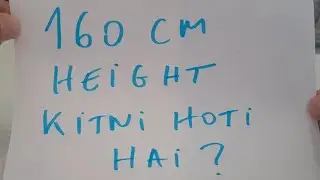 160 CM
HEIGHT
KITNI HOTI
HAI ?